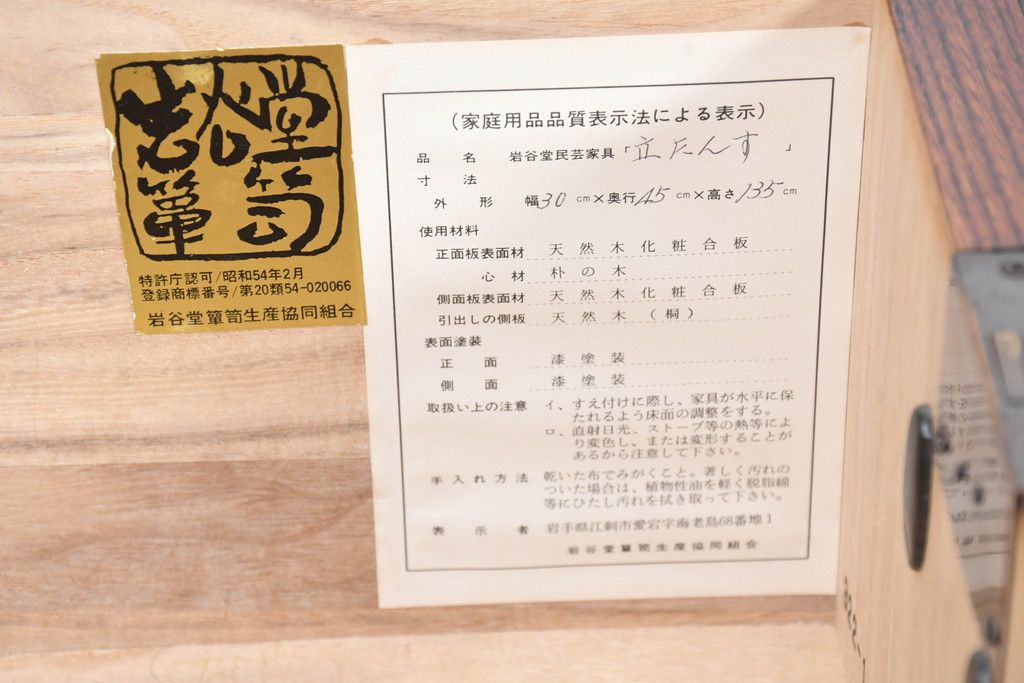 岩谷堂
箪笥
特許庁認可/昭和54年2月
登録商標番号/第20類54-020066
岩谷堂簞笥生産協同組合
(家庭用品品質表示法による表示)
品名 岩谷堂民芸家具「立たんす」
寸法
外形 幅30cm×奥行45cm×高さ135cm
使用材料
正面板表面材 天然木化粧合板
心材 朴の木
側面板表面材 天然木化粧合板
引出しの側板 天然木(桐)
表面塗装
正面 漆塗装
側面 漆塗装
取扱い上の注意 イ、すえ付けに際し、家具が水平に保
たれるよう床面の調整をする。
ロ、直射日光、ストーブ等の熱等によ
り変色し、または変形することが
あるから注意して下さい。
手入れ方法 乾いた布でみがくこと。著しく汚れの
ついた場合は、植物性油を軽く脱脂綿
等にひたし汚れを拭き取って下さい。
表示者 岩手県江刺市愛宕字海老島68番地1
岩谷堂簞笥生産協同組合